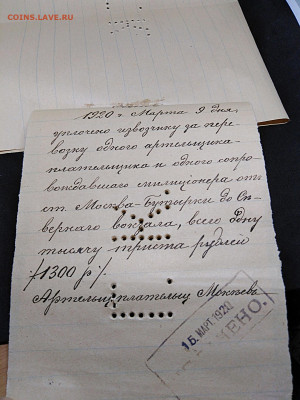 COINS.LAVE.RU
1920 г Марта 9 дня,
уплочено извозчику за пере-
возку одного артельщика-
плательщика и одного сопро-
вождавшего милиционера от
ст. Москва-Бутырки до Се-
верного вокзала, всего Одну
тысячу триста рублей
/1300 р/.
Артельщ. плательщ
15 МАР 1920